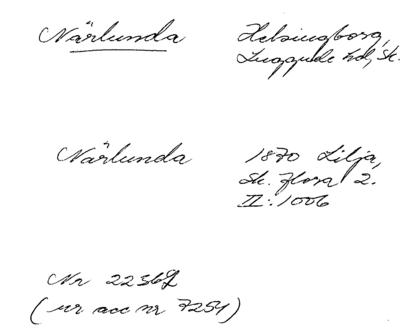 Närlunda
Helsingborg,
Luggude hd, Sk.
Närlunda
1870 Lilja,
Sk. flora 2.
II:1006
Nr
(ur acc nr 7254)